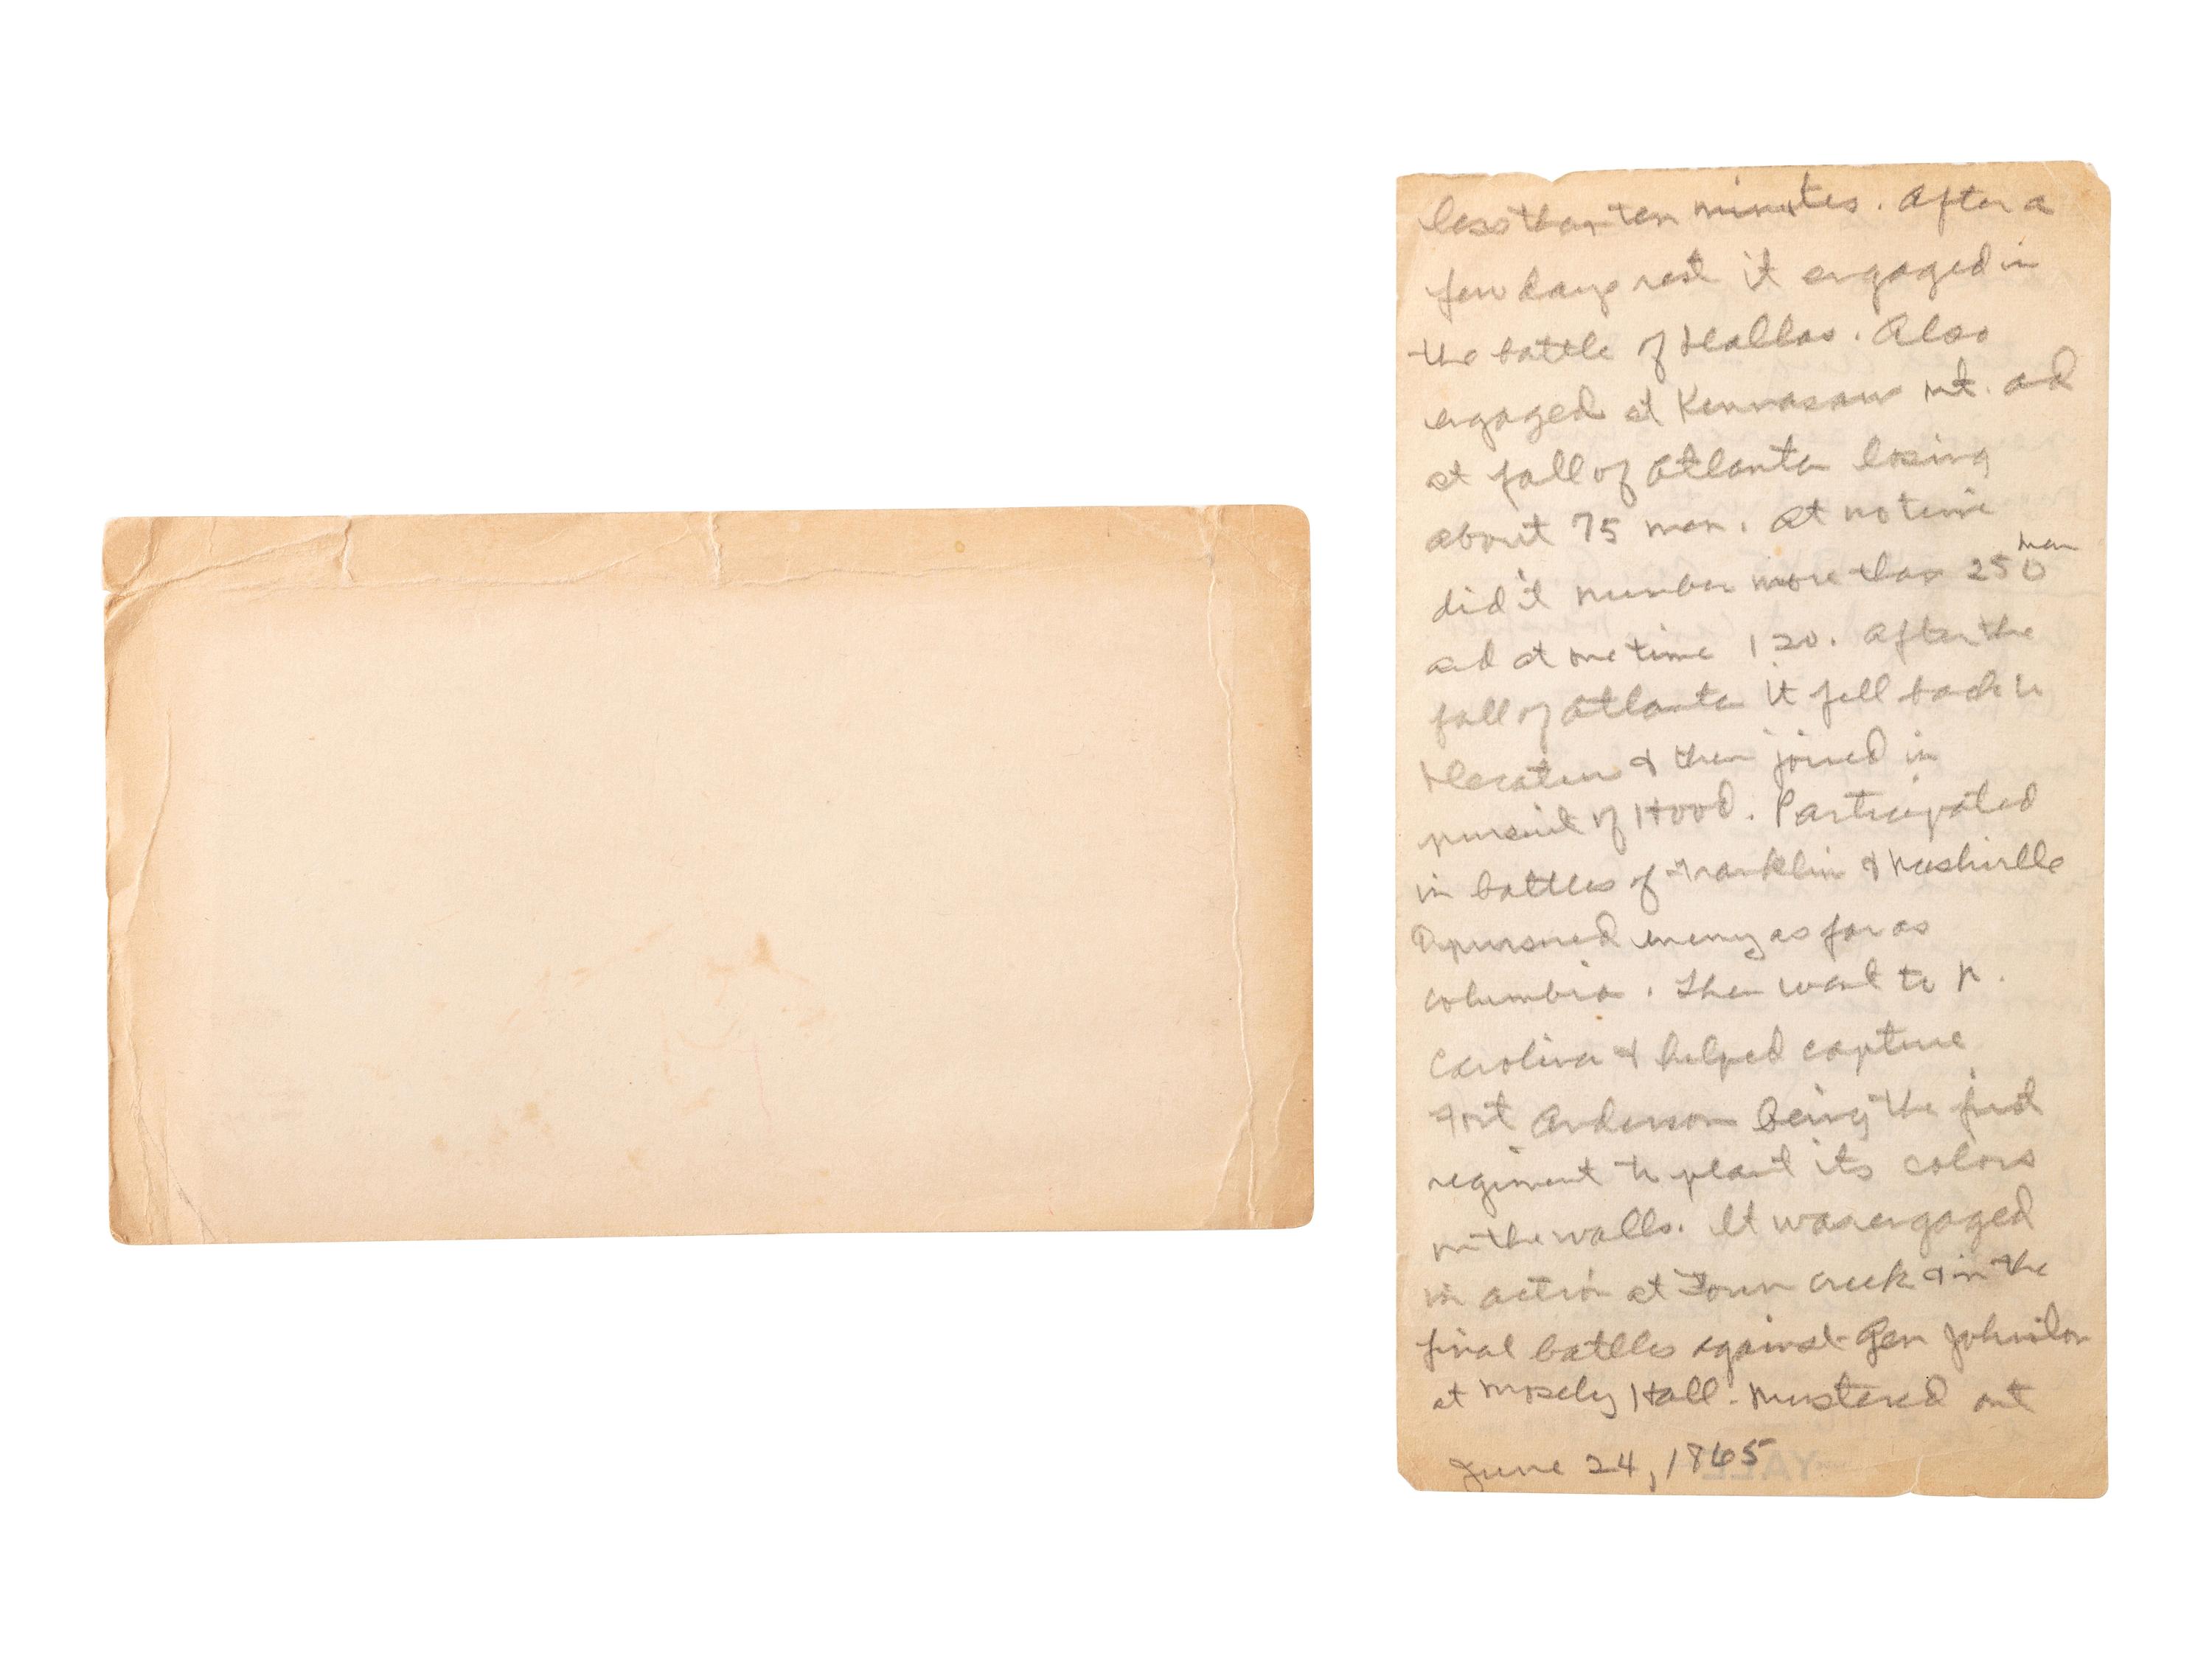 less than ten minutes. After a
few days rest it engaged in
the battle of Dallas. Also
engaged at Kennasaw mt. ad
at fall of Atlanta losing
about 75 men. At no time
did it number more than 250 men
and at one time 120. After the
fall of Atlanta it fell back to
Decatur & then joined in
pursuit of Hood. Participated
in battles of Franklin & Nashville
& pursued enemy as far as
Columbia. Then went to N.
Carolina & helped capture
Fort Anderson being the first
regiment to plant its colors
on the walls. It was engaged
in action at Town Creek & in the
final battles against Gen Johnston
at Mosely Hall - Mustered out
June 24, 1865
YALE